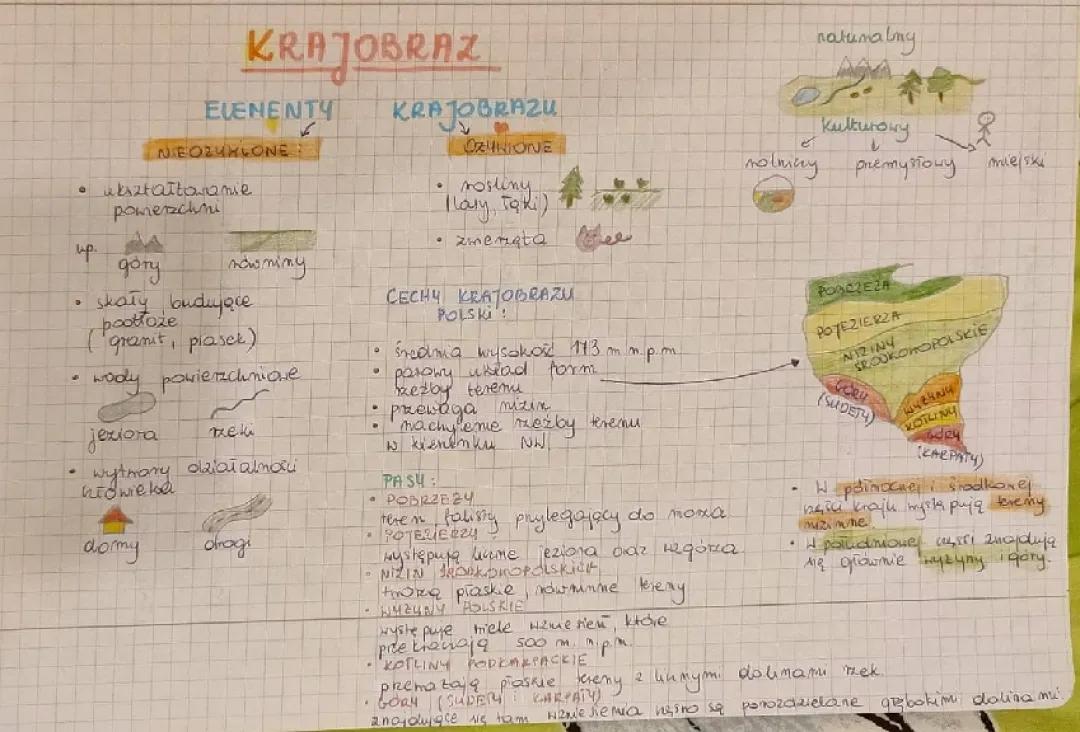 KRAJOBRAZ
ELEMENTY KRAJOBRAZU
NIEOŻYWIONE:
• ukształtowanie
powierzchni
np.
góry
równiny
• skały budujące
podłoże
(granit, piasek)
• wody powierzchniowe
jeziora
rzeki
• wytwory działalności
człowieka
domy
drogi
OŻYWIONE
• rośliny
(lasy, łąki)
• zwierzęta
CECHY KRAJOBRAZU
POLSKI:
• średnia wysokość 173 m n.p.m
• pasowy układ form
rzeźby terenu
• przewaga nizin
• nachylenie rzeźby terenu
w kierunku NW.
PASY:
• POBRZEŻY
teren falisty przylegający do morza
• POJEZIERZY
występują liczne jeziora oraz wzgórza
• NIZIN ŚRODKOWOPOLSKICH
tworzą płaskie, równinne tereny
• WYŻYNY POLSKIE
występuje wiele wzniesień, które
przekraczają 500 m. n.p.m.
• KOTLINY PODKARPACKIE
przeważają płaskie tereny z licznymi dolinami rzek.
• GÓRY (SUDETY i KARPATY)
znajdujące się tam wzniesienia często są porozdzielane głębokimi dolinami
naturalny
kulturowy
rolniczy
przemysłowy
miejski
POBRZEŻA
POJEZIERZA
NIZINY
ŚRODKOWOPOLSKIE
GÓRY
(SUDETY)
WYŻYNY
KOTLINY
GÓRY
(KARPATY)
• W północnej i środkowej
części kraju występują tereny
nizinne.
• W południowej części znajdują
się głównie wyżyny i góry.